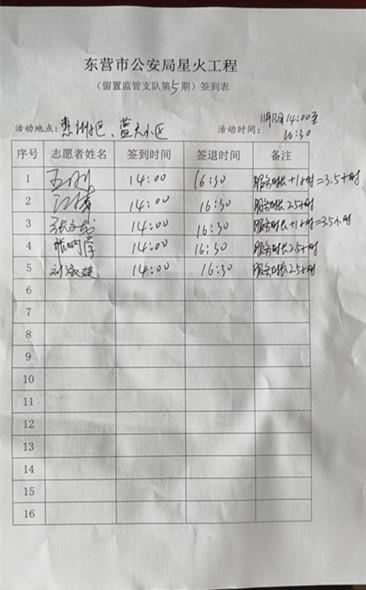 东营市公安局星火工程
(留置监管支队第5期)签到表
活动地点: 小区、蓝天小区
活动时间: 14:00至
16:30
序号 志愿者姓名 签到时间 签退时间 备注
1 14:00 16:30 服务时长+1小时=3.5小时
2 14:00 16:30 服务时长2.5小时
3 14:00 16:30 服务时长+1小时=3.5小时
4 14:00 16:30 服务时长2.5小时
5 14:00 16:30 服务时长2.5小时
6
7
8
9
10
11
12
13
14
15
16